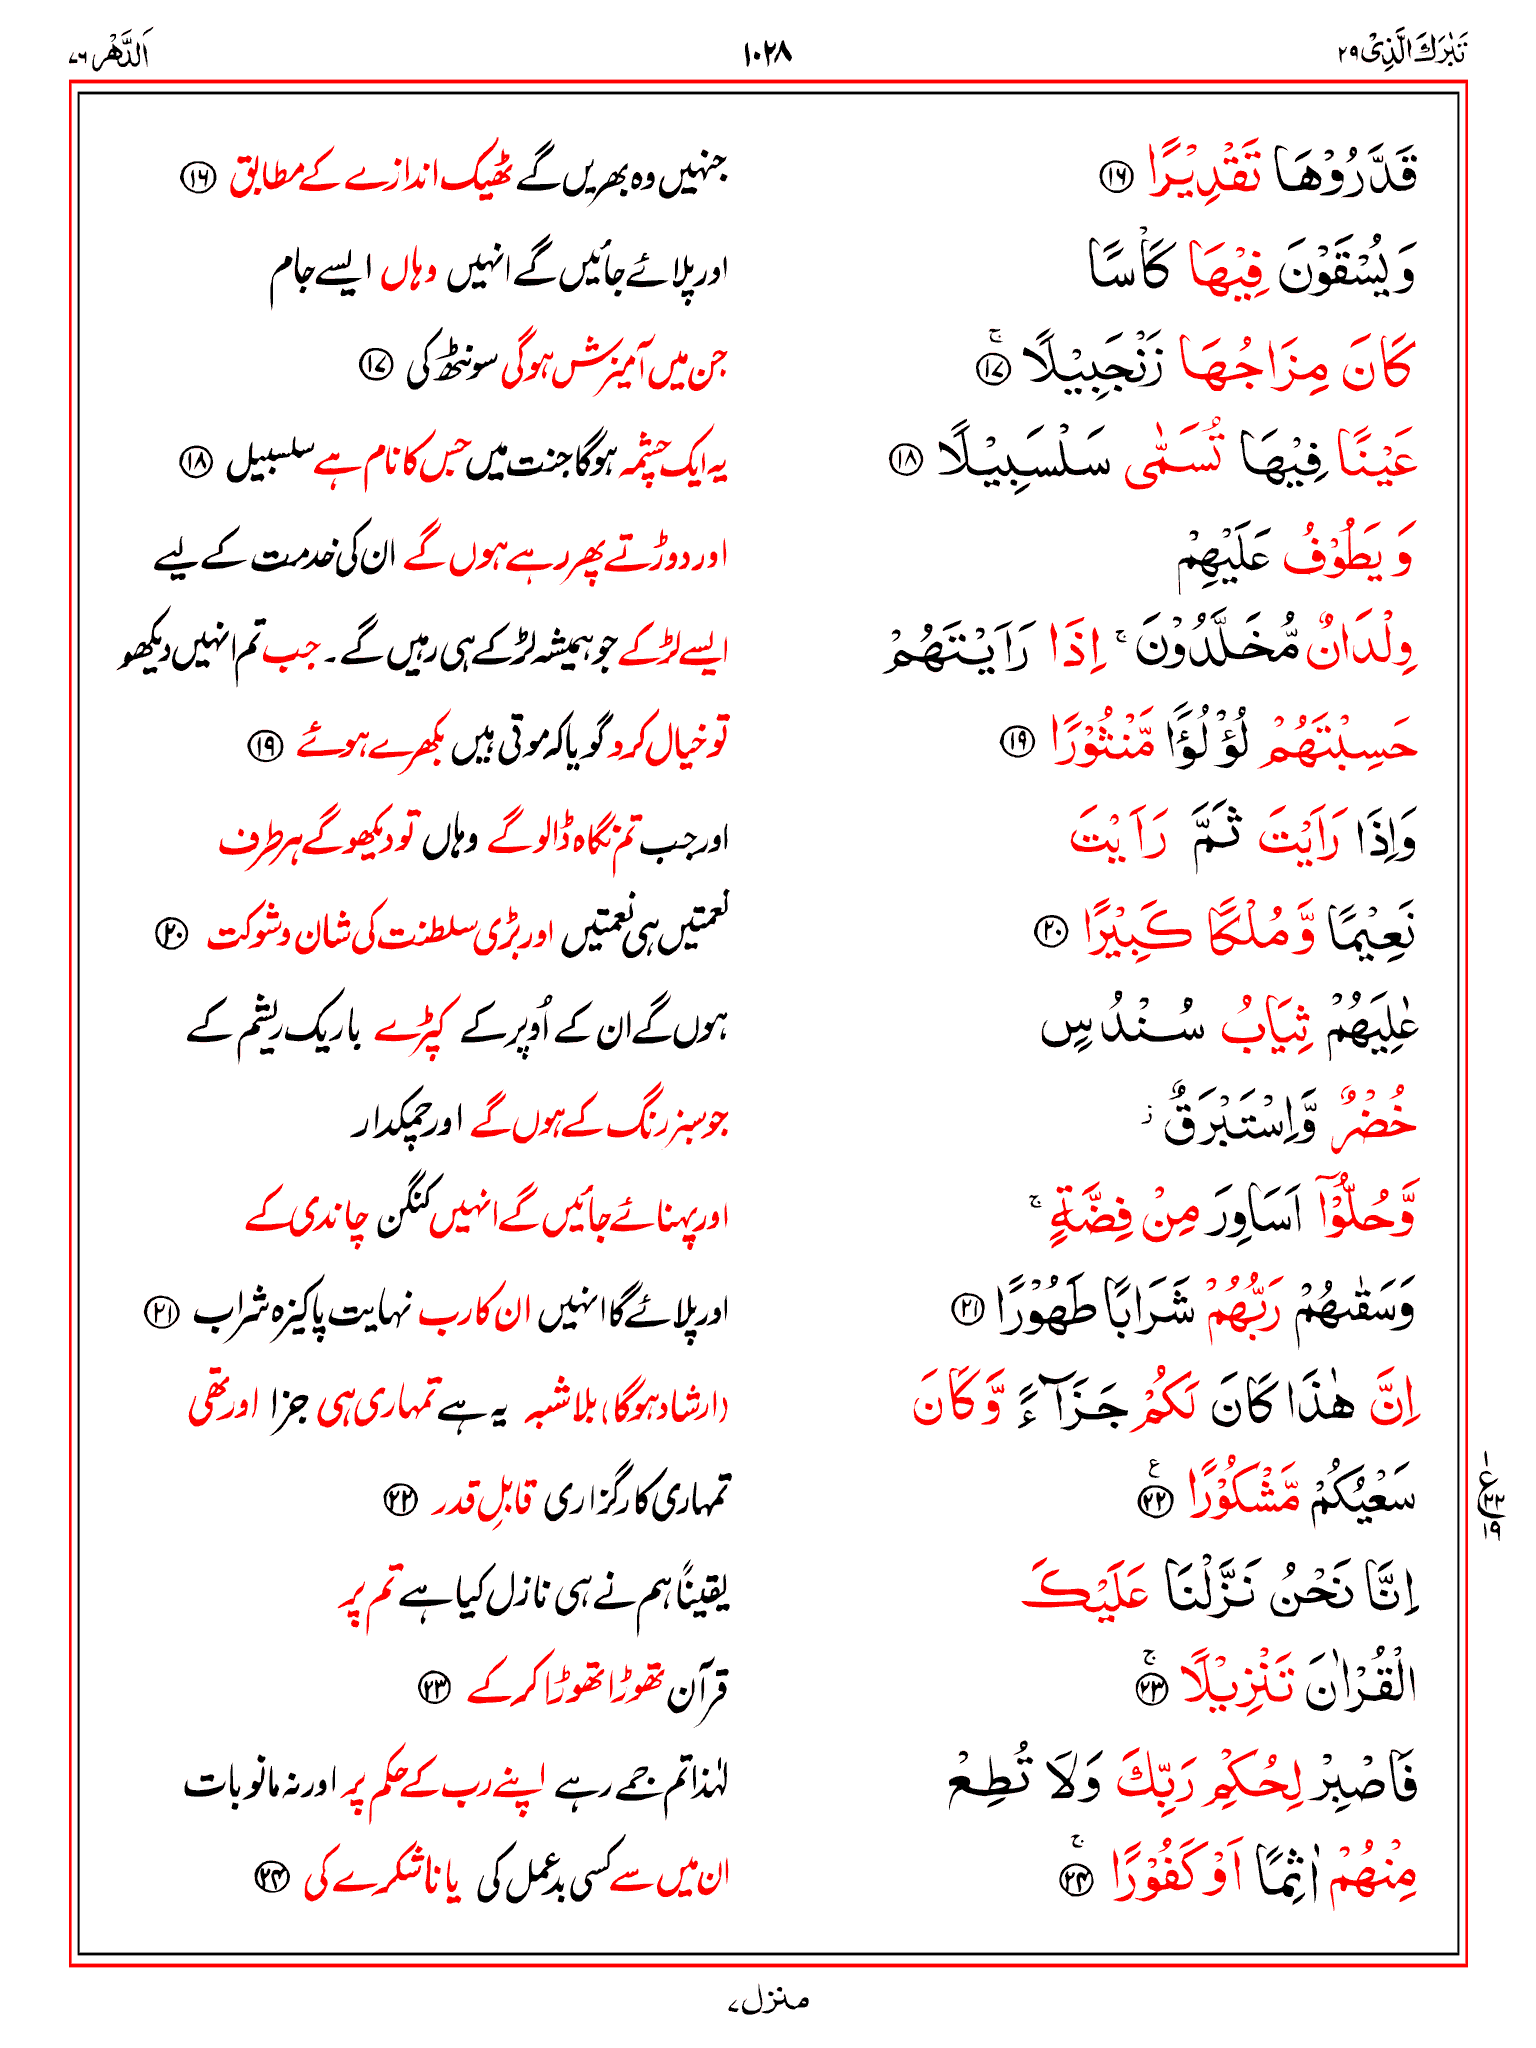 تَبٰرَكَ الَّذِىْ ۲۹
۱۰۲۸
اَلدَّهْر ۷۶
قَدَّرُوْهَا تَقْدِيْرًا ۝۱۶ جنہیں وہ بھریں گے ٹھیک اندازے کے مطابق ۝۱۶
وَ يُسْقَوْنَ فِيْهَا كَاْسًا اور پلائے جائیں گے انہیں وہاں ایسے جام
كَانَ مِزَاجُهَا زَنْجَبِيْلًا ۚ۝۱۷ جن میں آمیزش ہوگی سونٹھ کی ۝۱۷
عَيْنًا فِيْهَا تُسَمّٰى سَلْسَبِيْلًا ۝۱۸ یہ ایک چشمہ ہوگا جنت میں جس کا نام ہے سلسبیل ۝۱۸
وَ يَطُوْفُ عَلَيْهِمْ اور دوڑتے پھر رہے ہوں گے ان کی خدمت کے لیے
وِلْدَانٌ مُّخَلَّدُوْنَ ۚ اِذَا رَاَيْتَهُمْ ایسے لڑکے جو ہمیشہ لڑکے ہی رہیں گے۔ جب تم انہیں دیکھو
حَسِبْتَهُمْ لُؤْلُؤًا مَّنْثُوْرًا ۝۱۹ تو خیال کرو گویا کہ موتی ہیں بکھرے ہوئے ۝۱۹
وَاِذَا رَاَيْتَ ثَمَّ رَاَيْتَ اور جب تم نگاہ ڈالو گے وہاں تو دیکھو گے ہر طرف
نَعِيْمًا وَّ مُلْكًا كَبِيْرًا ۝۲۰ نعمتیں ہی نعمتیں اور بڑی سلطنت کی شان و شوکت ۝۲۰
عٰلِيَهُمْ ثِيَابُ سُنْدُسٍ ہوں گے ان کے اُوپر کے کپڑے باریک ریشم کے
خُضْرٌ وَّاِسْتَبْرَقٌ ز جو سبز رنگ کے ہوں گے اور چمکدار
وَّحُلُّوْٓا اَسَاوِرَ مِنْ فِضَّةٍ ۚ اور پہنائے جائیں گے انہیں کنگن چاندی کے
وَسَقٰىهُمْ رَبُّهُمْ شَرَابًا طَهُوْرًا ۝۲۱ اور پلائے گا انہیں ان کا رب نہایت پاکیزہ شراب ۝۲۱
اِنَّ هٰذَا كَانَ لَكُمْ جَزَآءً وَّ كَانَ (ارشاد ہوگا) بلاشبہ یہ ہے تمہاری ہی جزا اور تھی
سَعْيُكُمْ مَّشْكُوْرًا ۝۲۲ ع تمہاری کارگزاری قابلِ قدر ۝۲۲
ع ۱ ۲۲ ۱۹
اِنَّا نَحْنُ نَزَّلْنَا عَلَيْكَ یقیناً ہم نے ہی نازل کیا ہے تم پر
الْقُرْاٰنَ تَنْزِيْلًا ۚ۝۲۳ قرآن تھوڑا تھوڑا کر کے ۝۲۳
فَاصْبِرْ لِحُكْمِ رَبِّكَ وَلَا تُطِعْ لہٰذا تم جمے رہے اپنے رب کے حکم پر اور نہ مانو بات
مِنْهُمْ اٰثِمًا اَوْ كَفُوْرًا ۚ۝۲۴ ان میں سے کسی بدعمل کی یا ناشکرے کی ۝۲۴
منزل ۷